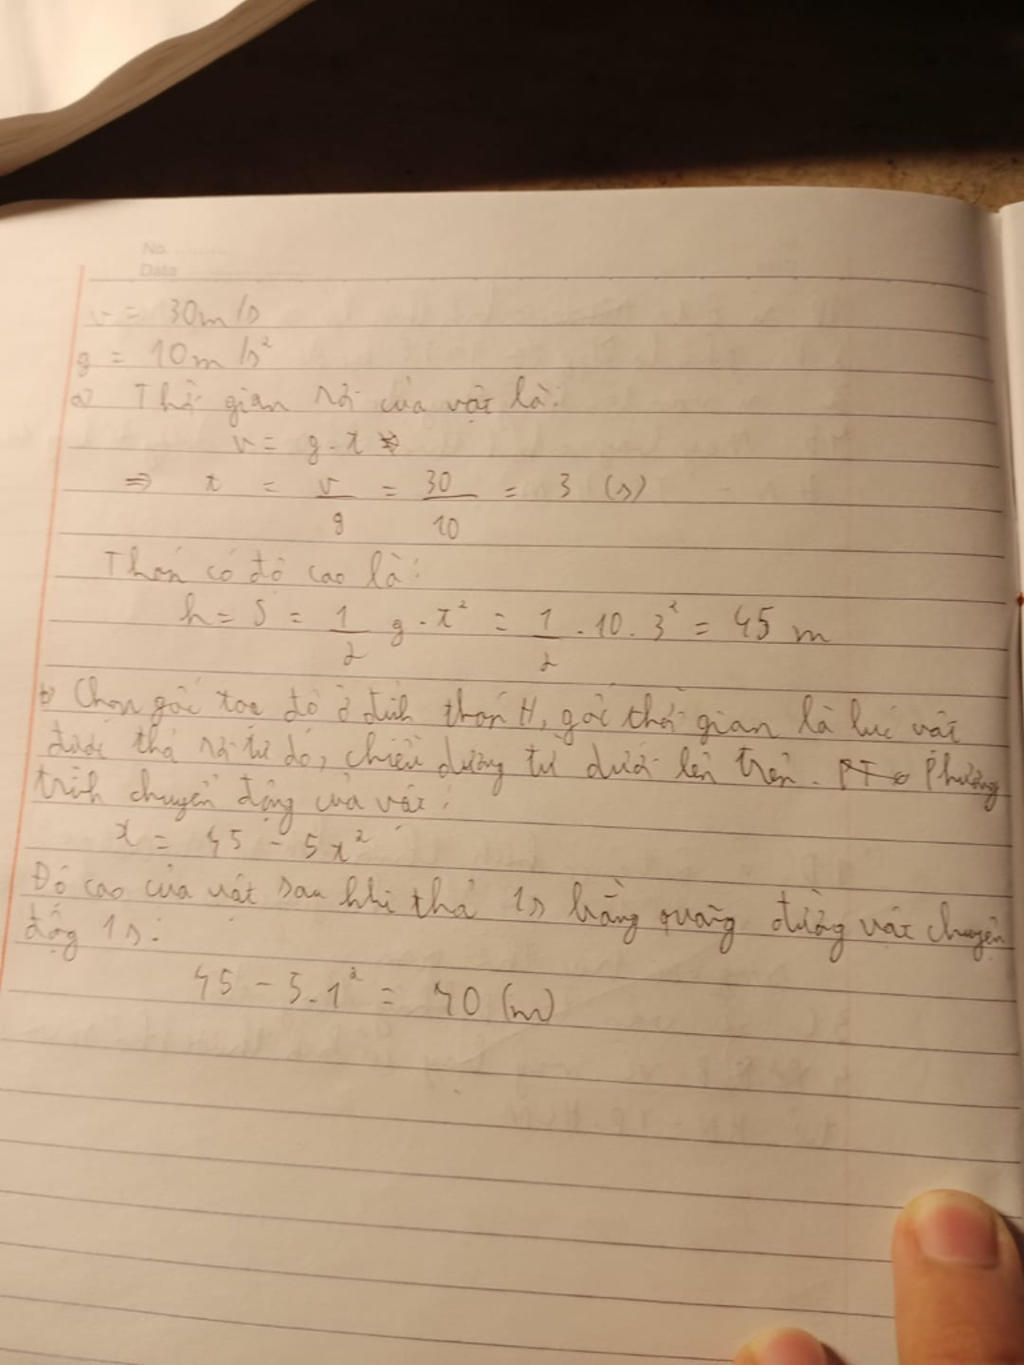 No. ............
Date ....................
v = 30m/s
g = 10m/s²
a) Thời gian rơi của vật là:
v = g.t
⇒ t = v/g = 30/10 = 3 (s)
Tháp có độ cao là:
h = S = 1/2 g.t² = 1/2 . 10. 3² = 45 m
b) Chọn gốc toạ độ ở đỉnh tháp H, gốc thời gian là lúc vật
được thả rơi từ đó, chiều dương từ dưới lên trên. PT Phương
trình chuyển động của vật:
x = 45 - 5x²
Độ cao của vật sau khi thả 1s bằng quãng đường vật chuyển
động 1s:
45 - 5.1² = 40 (m)